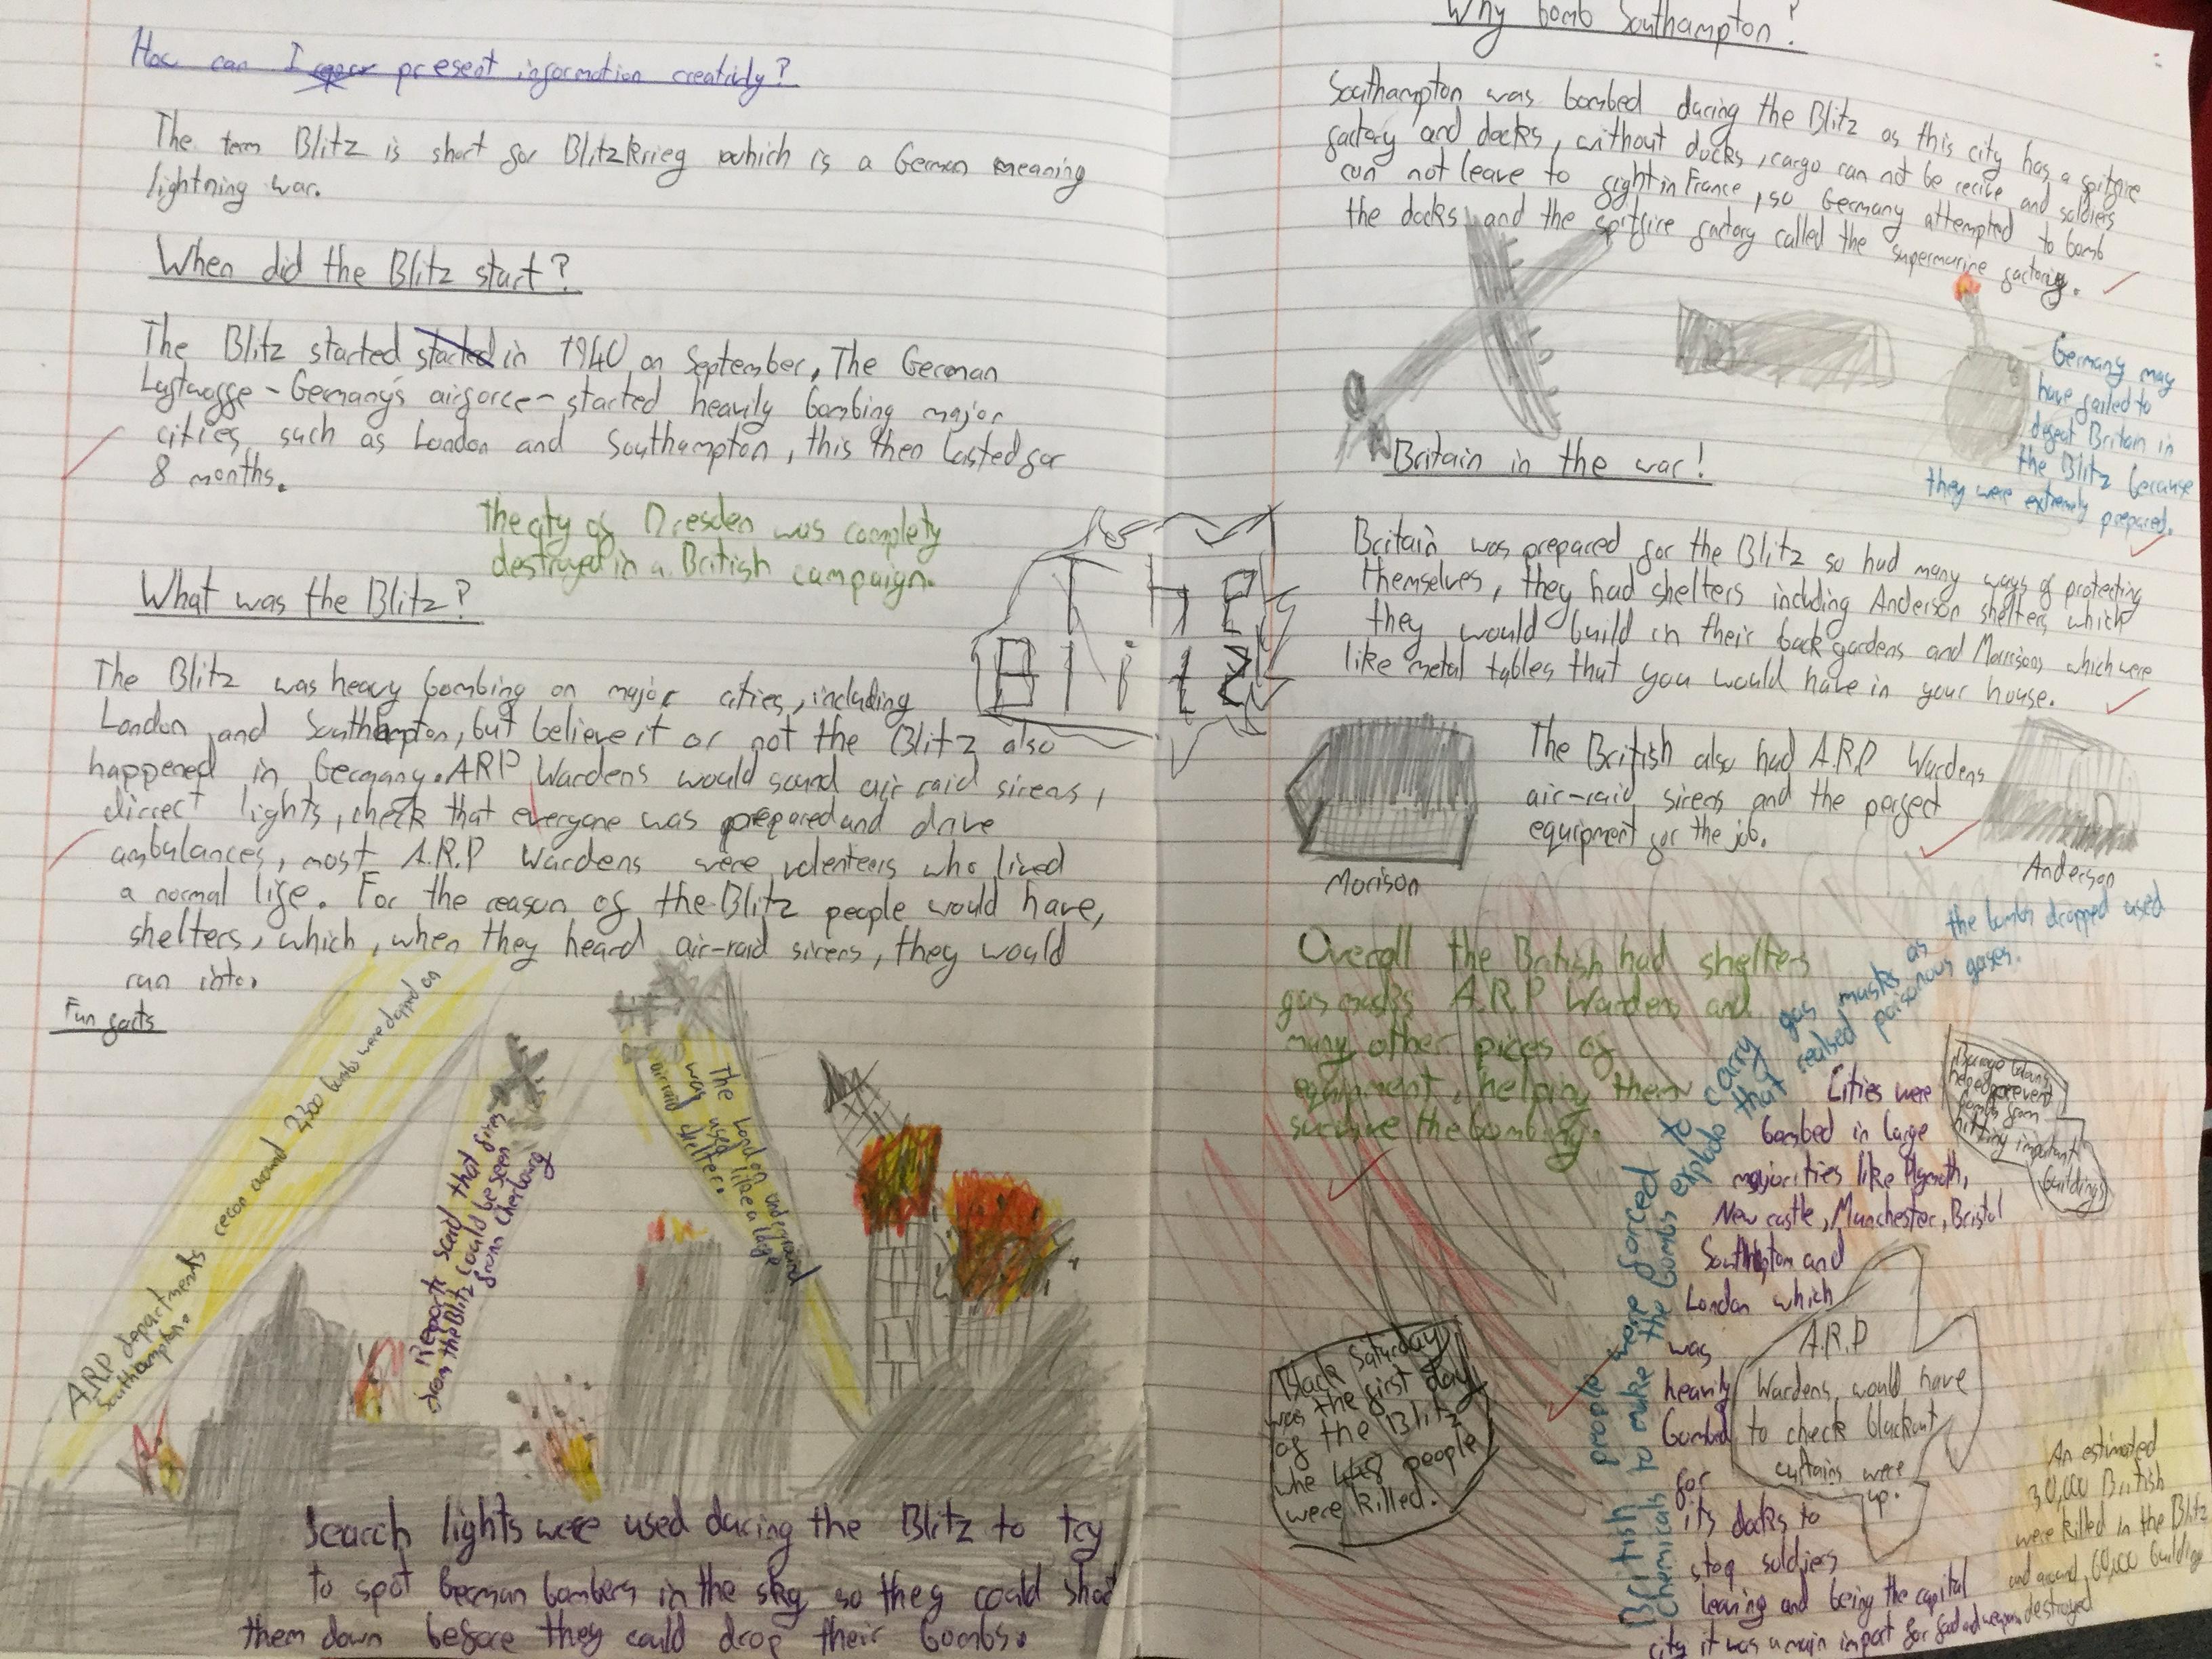 How can I present information creativly?
The term Blitz is short for Blitzkrieg which is a German meaning
lightning war.
When did the Blitz start?
The Blitz started started in 1940 on September. The German
Luftwaffe - Germany's airforce - started heavily bombing major
cities, such as London and Southampton, this then lasted for
8 months.
The city of Dresden was complety
destroyed in a British campaign.
What was the Blitz?
THE
Blitz
The Blitz was heavy bombing on major cities, including
London and Southampton, but believe it or not the Blitz also
happened in Germany. ARP Wardens would sound air raid sirens,
dirrect lights, check that everyone was prepared and drive
ambulances, most A.R.P Wardens were volenteers who lived
a normal life. For the reason of the Blitz people would have,
shelters, which, when they heard air-raid sirens, they would
run into.
Fun facts
A.R.P departments recon around 2300 bombs were dropped on
Southampton.
Reports said that fires
from the Blitz could be seen
from Cherbourg
The London underground
was used like a large
air raid shelter.
Search lights were used during the Blitz to try
to spot German bombers in the sky so they could shoot
them down before they could drop their bombs.
Why bomb Southampton?
Southampton was bombed during the Blitz as this city has a spitfire
factory and docks, without docks, cargo can not be recive and soldiers
can not leave to fight in France, so Germany attempted to bomb
the docks and the spitfire factory called the supermarine factory.
Germany may
have failed to
defeat Britain in
the Blitz because
they were extremely prepared.
Britain in the war!
Britain was prepared for the Blitz so had many ways of protecting
themselves, they had shelters including Anderson shelters, which
they would build in their back gardens and Morrisons which were
like metal tables that you would have in your house.
The British also had A.R.P Wardens
air-raid sirens and the perfect
equipment for the job.
Morison
Anderson
Overall the British had shelters
gas masks A.R.P Wardens and
many other pices of
equipment, helping them
survive the bombing.
British people were forced to carry gas masks as the bombs dropped used
Chemicals to make the bombs explode that realsed poisonous gases.
Barrage
helped prevent
bombs from
hitting important
buildings
Cities were
bombed in large
majorities like Plymoth,
New castle, Manchester, Bristol
Southampton and
London which
was
heavily
bombed
for
its docks to
stop soldiers
leaving and being the capital
city it was a main import for food and weapons
A.R.P
Wardens, would have
to check blackout
curtains were
up.
Black Saturday
was the first day
of the Blitz
whe 448 people
were killed.
An estimated
30,000 British
were killed in the Blitz
and around 60,000 buildings
destroyed